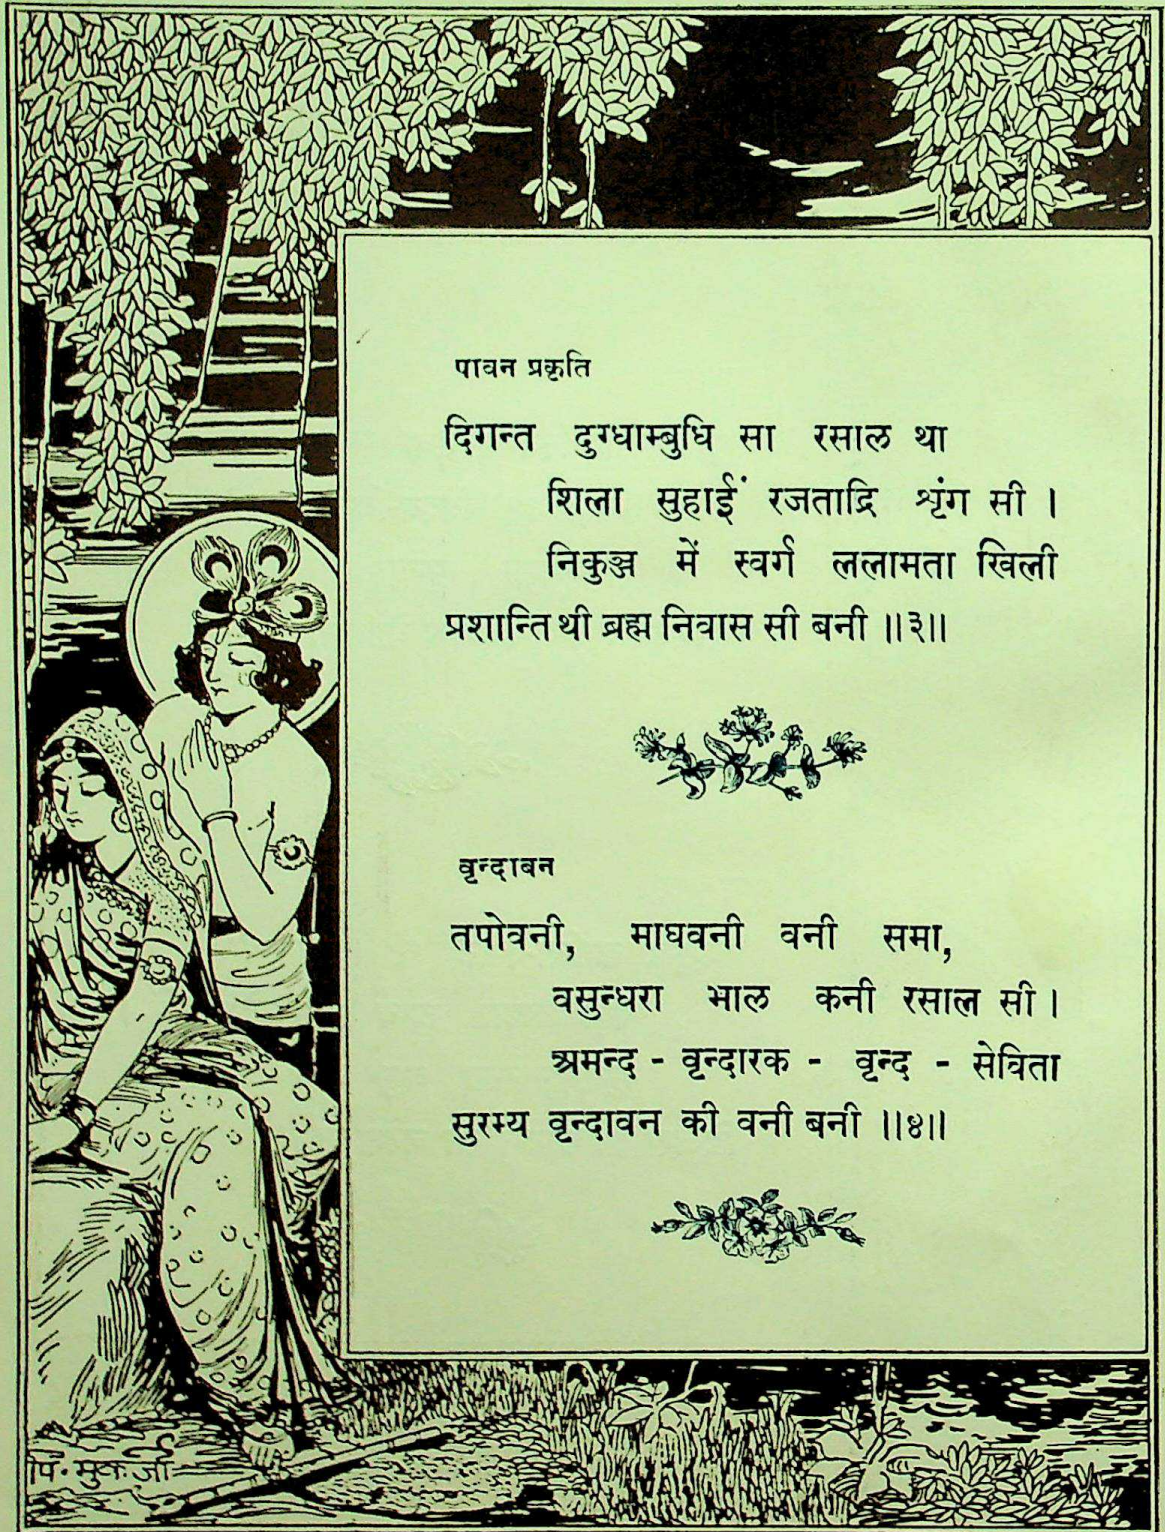 पावन प्रकृति
दिगन्त दुग्धाम्बुधि सा रसाल था
शिला सुहाईं रजताद्रि श्रृंग सी ।
निकुञ्ज में स्वर्ग ललामता खिली
प्रशान्ति थी ब्रह्म निवास सी बनी ॥३॥
वृन्दाबन
तपोवनी, माघवनी वनी समा,
वसुन्धरा भाल कनी रसाल सी ।
अमन्द - वृन्दारक - वृन्द - सेविता
सुरम्य वृन्दावन की वनी बनी ॥४॥
पि. मुकर्जी